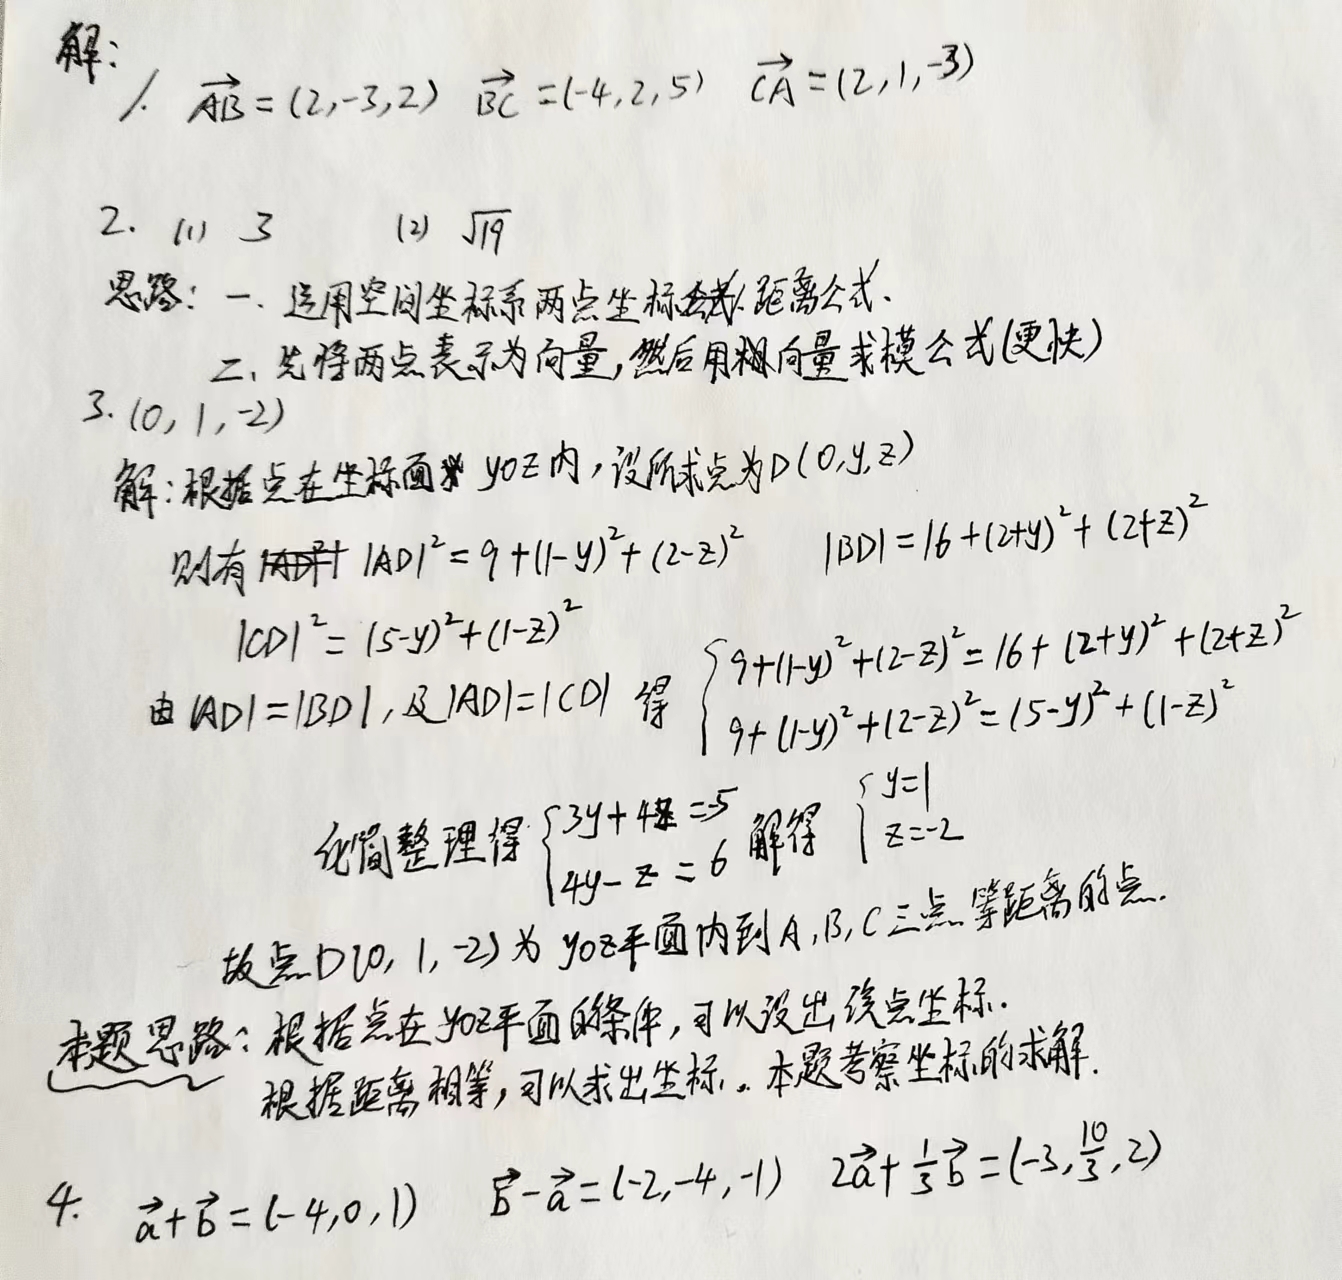 解:
1. AB→=(2,-3,2) BC→=(-4,2,5) CA→=(2,1,-3)
2. (1) 3 (2) √19
思路: 一、运用空间坐标系两点坐标距离公式.
二、先将两点表示为向量,然后用向量求模公式(更快)
3. (0,1,-2)
解:根据点在坐标面yoz内,设所求点为D(0,y,z)
则有 |AD|²=9+(1-y)²+(2-z)² |BD|=16+(2+y)²+(2+z)²
|CD|²=(5-y)²+(1-z)²
由|AD|=|BD|,及|AD|=|CD| 得 {9+(1-y)²+(2-z)²=16+(2+y)²+(2+z)²
9+(1-y)²+(2-z)²=(5-y)²+(1-z)²
化简整理得 {3y+4z=-5 解得 {y=1
4y-z=6 z=-2
故点D(0,1,-2)为yoz平面内到A,B,C三点等距离的点.
本题思路:根据点在yoz平面的条件,可以设出该点坐标.
根据距离相等,可以求出坐标。本题考察坐标的求解.
4. a→+b→=(-4,0,1) b→-a→=(-2,-4,-1) 2a→+1/3b→=(-3,10/3,2)